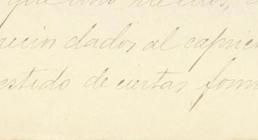 que uno
recin dados al capric
estido de ciertas form